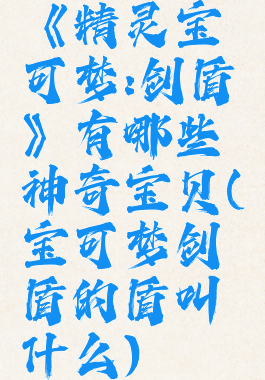 《精灵宝
可梦:剑盾
》有哪些
神奇宝贝(
宝可梦剑
盾的盾叫
什么)